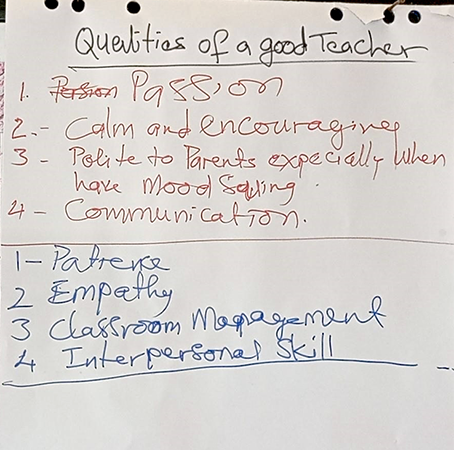 Qualities of a good Teacher
1. Passion
2.- Calm and encouraging
3 - Polite to Parents expecially when
have Mood Swing.
4 - Communication.
1 - Patience
2 Empathy
3 Classroom Management
4 Interpersonal Skill